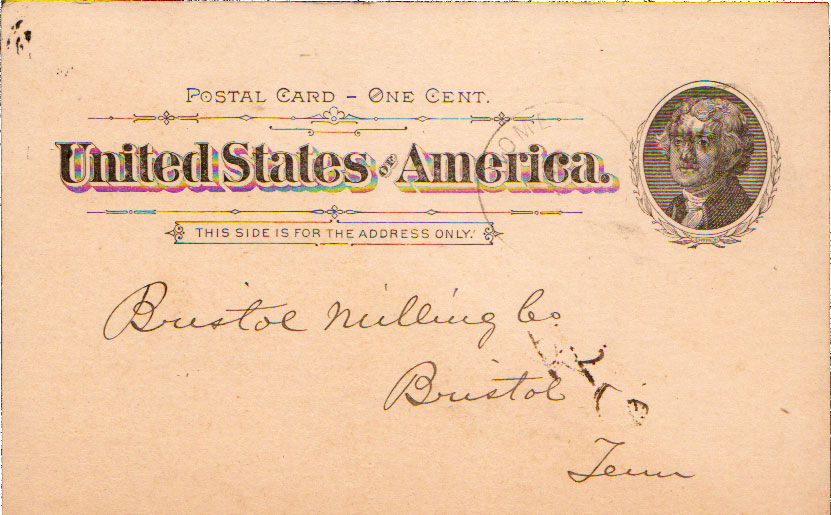 POSTAL CARD - ONE CENT.
United States OF America.
THIS SIDE IS FOR THE ADDRESS ONLY.
Bristol Milling Co.
Bristol
Tenn